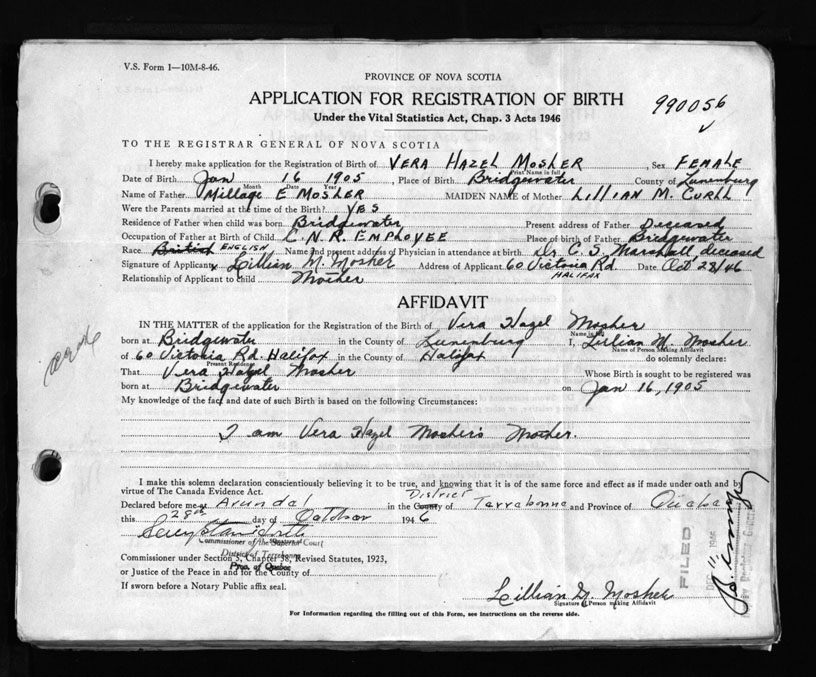 V.S. Form 1—10M-8-46.
PROVINCE OF NOVA SCOTIA
APPLICATION FOR REGISTRATION OF BIRTH
990056
Under the Vital Statistics Act, Chap. 3 Acts 1946
TO THE REGISTRAR GENERAL OF NOVA SCOTIA
I hereby make application for the Registration of Birth of VERA HAZEL MOSHER, Sex FEMALE
Print Name in full
Date of Birth Jan 16 1905, Place of Birth Bridgewater County of Lunenburg
Month Date Year
Name of Father Millage E MOSHER MAIDEN NAME of Mother LILLIAN M. CURLL
Were the Parents married at the time of the Birth? YES
Residence of Father when child was born Bridgewater Present address of Father Deceased
Occupation of Father at Birth of Child C.N.R. EMPLOYEE Place of birth of Father Bridgewater
Race British ENGLISH Name and present address of Physician in attendance at birth Dr C. S. Marshall, deceased
Signature of Applicant x Lillian M. Mosher Address of Applicant 60 Victoria Rd. Date Oct 28/46
HALIFAX
Relationship of Applicant to child Mother
AFFIDAVIT
IN THE MATTER of the application for the Registration of the Birth of Vera Hazel Mosher
Name in full
born at Bridgewater in the County of Lunenburg I, Lillian M. Mosher
Name of Person Making Affidavit
of 60 Victoria Rd. Halifax in the County of Halifax do solemnly declare:
Present Residence
That Vera Hazel Mosher Whose Birth is sought to be registered was
born at Bridgewater on Jan 16, 1905
My knowledge of the fact and date of such Birth is based on the following Circumstances:
I am Vera Hazel Mosher's Mother.
I make this solemn declaration conscientiously believing it to be true, and knowing that it is of the same force and effect as if made under oath and by
virtue of The Canada Evidence Act.
District
Declared before me at Arundel in the County of Terrebonne and Province of Quebec
this 28th day of October 1946
Commissioner of the Superior Court
District of Terrebonne
Commissioner under Section 3, Chapter 38, Revised Statutes, 1923,
Prov. of Quebec
or Justice of the Peace in and for the County of
If sworn before a Notary Public affix seal.
Lillian M. Mosher
Signature of Person making Affidavit
For Information regarding the filling out of this Form, see instructions on the reverse side.
FILED
DEC 11 1946